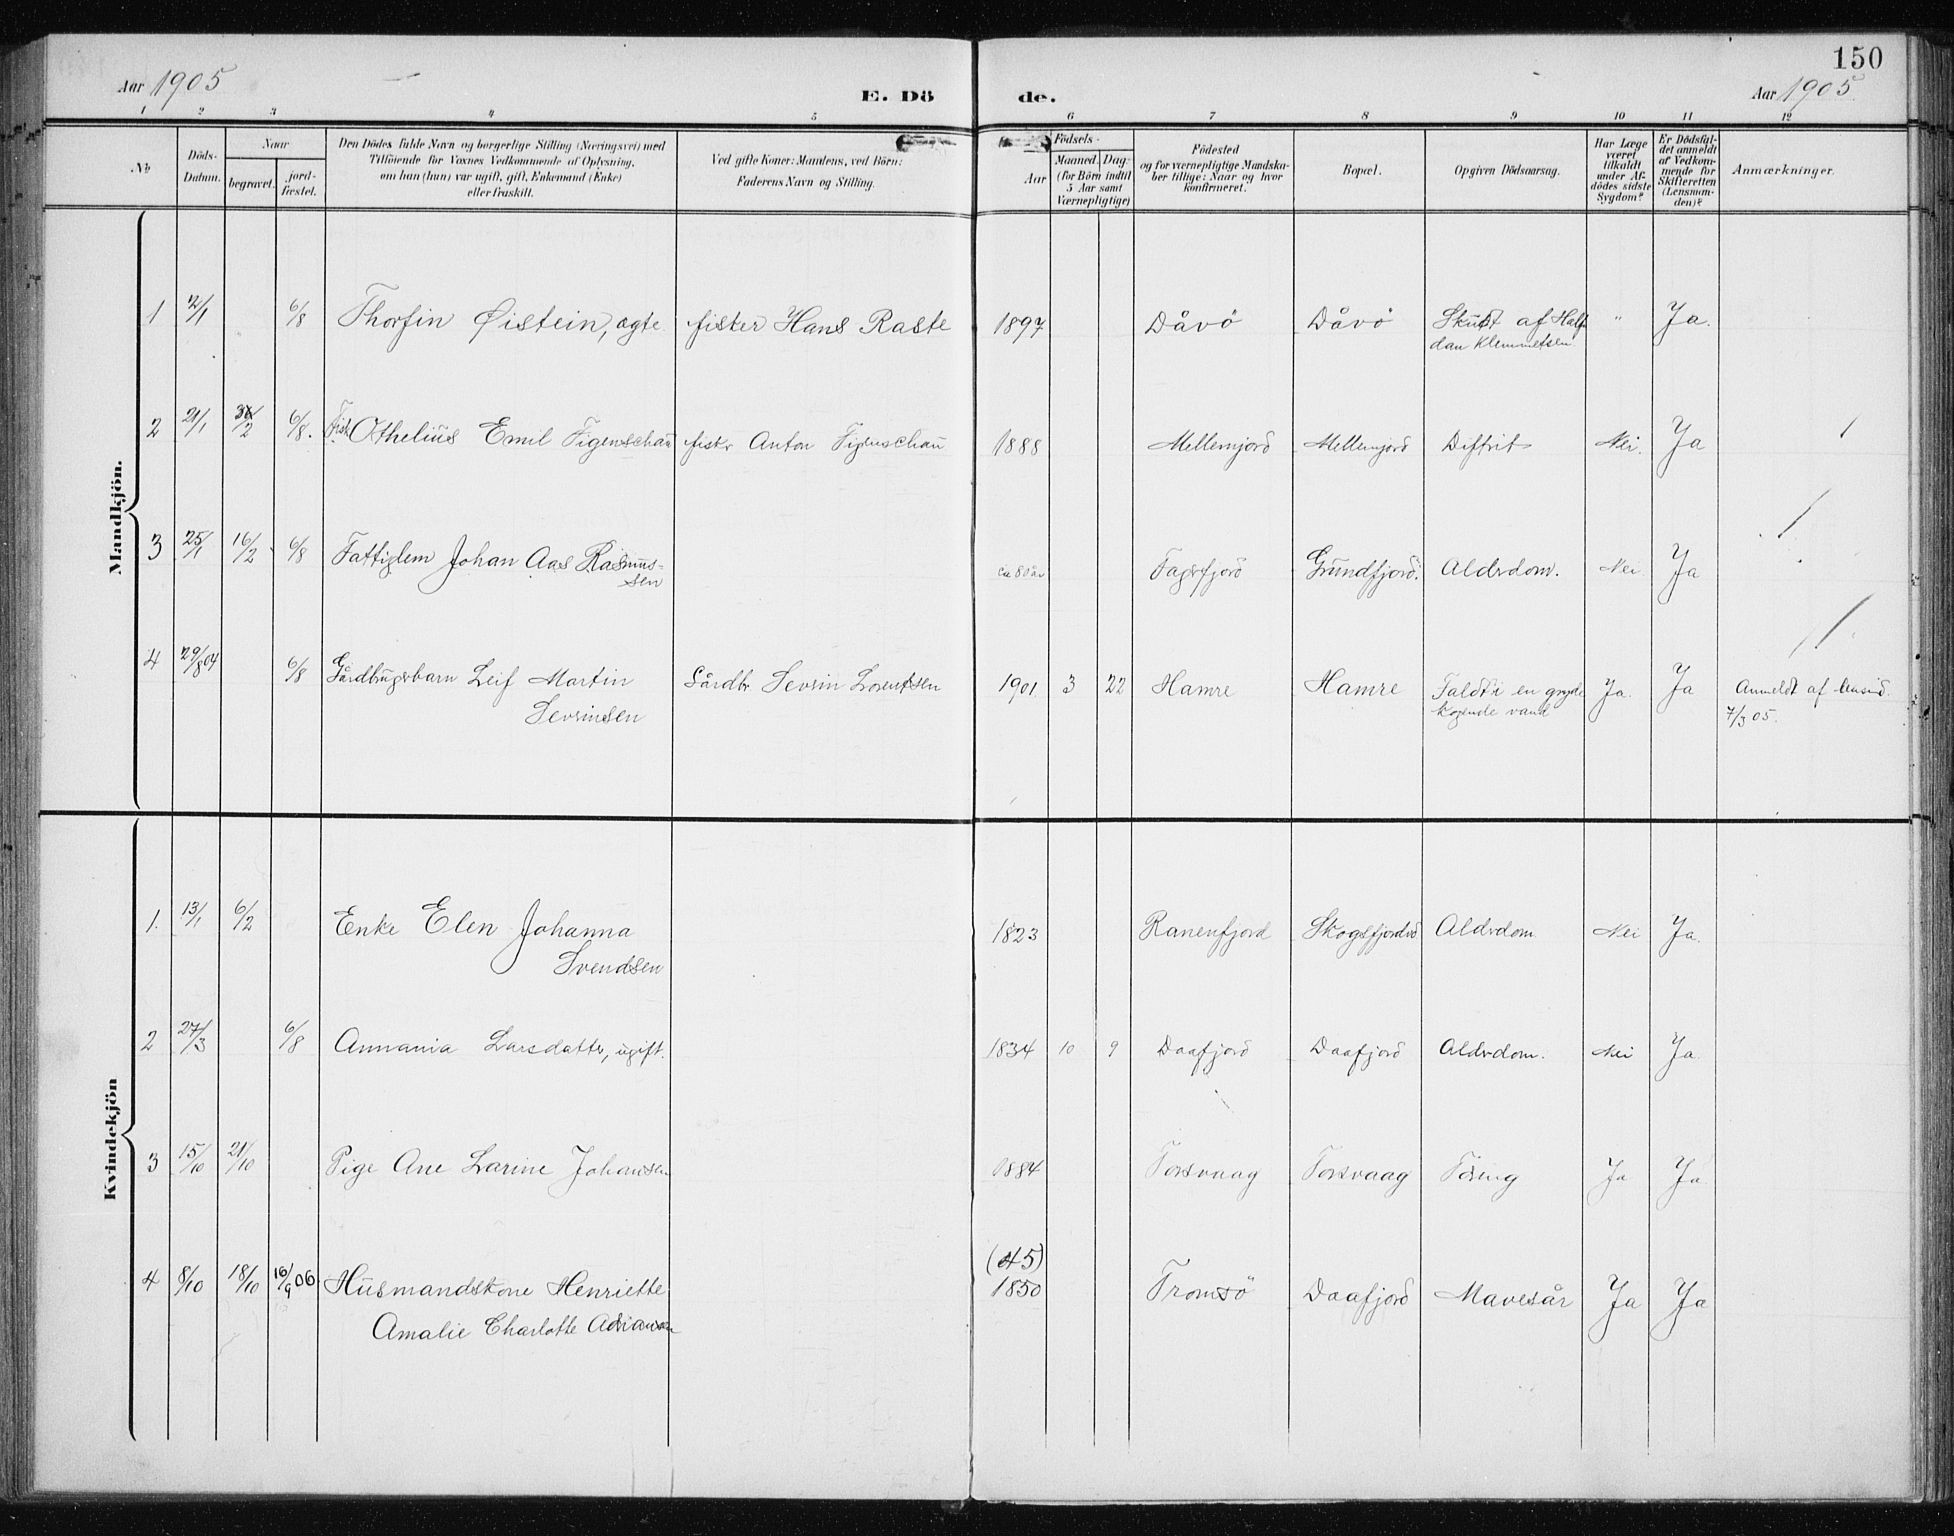 150
Aar 1905
E. Dö
de.
Aar 1905
1 2 3 4 5 6 7 8 9 10 11 12
No
Döds-
Datum.
Naar
begravet.
jord-
fæstet.
Den Dödes fulde Navn og borgerlige Stilling (Næringsvei) med
Tilföiende for Voxnes Vedkommende af Oplysning,
om han (hun) var ugift, gift, Enkemand (Enke)
eller fraskilt.
Ved gifte Koner: Mandens, ved Börn:
Faderens Navn og Stilling.
Födsels-
Aar
Maaned. Dag-
(for Börn indtil
5 Aar samt
Værnepligtige)
Födested
og for værnepligtige Mandska-
ber tillige: Naar og hvor
konfirmeret.
Bopæl.
Opgiven Dödsaarsag.
Har Læge
været
tilkaldt
under Af-
dödes sidste
Sygdom?
Er Dödsfal-
det anmeldt
af Vedkom-
mende for
Skifteretten
(Lensman-
den)?
Anmærkninger.
Mandkjön.
1 2/1 6/8 Thorfin Øistein, ægte fisker Hans Raste 1897 Dåvö Dåvö Skudt af Half
dan Klemmetsen " Ja.
2 21/1 6/8. Fisk Othelius Emil Figenschau fiskr Anton Figenschau 1888 Mellemjord Mellemjord Diftrit Nei. Ja
3 25/1 16/2 6/8 Fattiglem Johan Aas Rasmus-
sen ca 80 år Fagrfjord Grundfjord. Aldrdom. Nei. Ja
4 29/8 04 6/8 Gårdbrugrbarn Leif Martin
Sevrinsen Gårdbr Sevrin Lorentsen 1901 3 22 Hamre Hamre Faldt i en gryde
kogende vand Ja. Ja Anmeldt af
7/3 05.
Kvindekjön
1. 13/1 6/2 Enke Elen Johanna
Svendsen 1823 Ranenfjord Skogsfjord Aldrdom Nei Ja.
2 27/3 6/8 Annania Larsdattr, ugift. 1834 10 9 Daafjord Daafjord Aldrdom. Nei Ja.
3 15/10 21/10 Pige Ane Larine Johansen 1884 Torsvaag Torsvaag Tæring Ja Ja.
(45)
4 8/10 18/10 16/9 06. Husmandskone Henriette
Amalie Charlotte Adriansen 1850 Tromsö Daafjord Mavesår Ja Ja